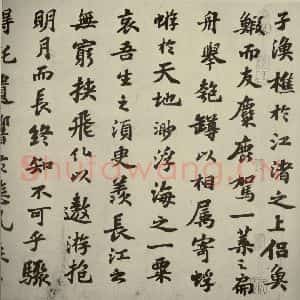 子漁樵於江渚之上侶魚
鰕而友麋鹿駕一葉之扁
舟舉匏罇以相屬寄蜉
蝣於天地渺浮海之一粟
哀吾生之須臾羨長江之
無窮挾飛仙以遨游抱
明月而長終知不可乎驟
得託遺響於悲風
Shufawang.cn